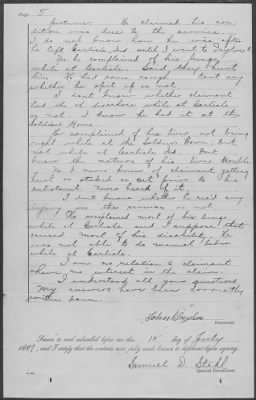 Page 5
pictures. He claimed his con
dition was due to the service.
I do not know how he was after
he left Carlisle, Ind. until I went to Dayton O.
He complained of his lungs
while at Carlisle. Said they hurt
him. He had some cough. Cant say
whether he spit up or not.
I dont know whether claimant
had the c d diarrhoea while at Carlisle
or not. I know he had it at the
Soldiers Home.
He complained of his liver not being
right while at the Soldiers Home but
not while at Carlisle Ind. Dont
know the nature of his liver trouble.
No I never knew of claimant getting
hurt or studied on prior to his
enlistment. Never heard of it.
I dont know whether he rec'd any
injury in the service or not.
He complained most of his lungs
while at Carlisle and I suppose that
caused most of his disability. He
was not able to do manual labor
while at Carlisle.
I am no relation to claimant
have no interest in the claim.
I understood all your questions.
My answers have been correctly
written down.
John
Deponent.
Sworn to and subscribed before me this 15 day of July
1887, and I certify that the contents were fully made known to deponent before signing.
Samuel D. Stahl
Special Examiner.